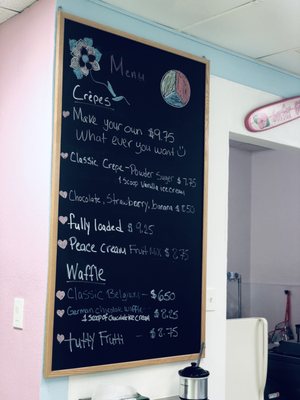 Menu
Crêpes
Make your own $9.75
What ever you want
Classic Crepe - Powder Suger $7.75
1 scoop Vanilla ice cream
Chocolate, Strawberry, banana $8.50
fully loaded $9.25
Peace cream Fruit Mix $8.75
Waffle
Classic Belgium - $6.50
German chocolate waffle $8.25
1 scoop of chocolate ice cream
tutty Frutti - $8.75